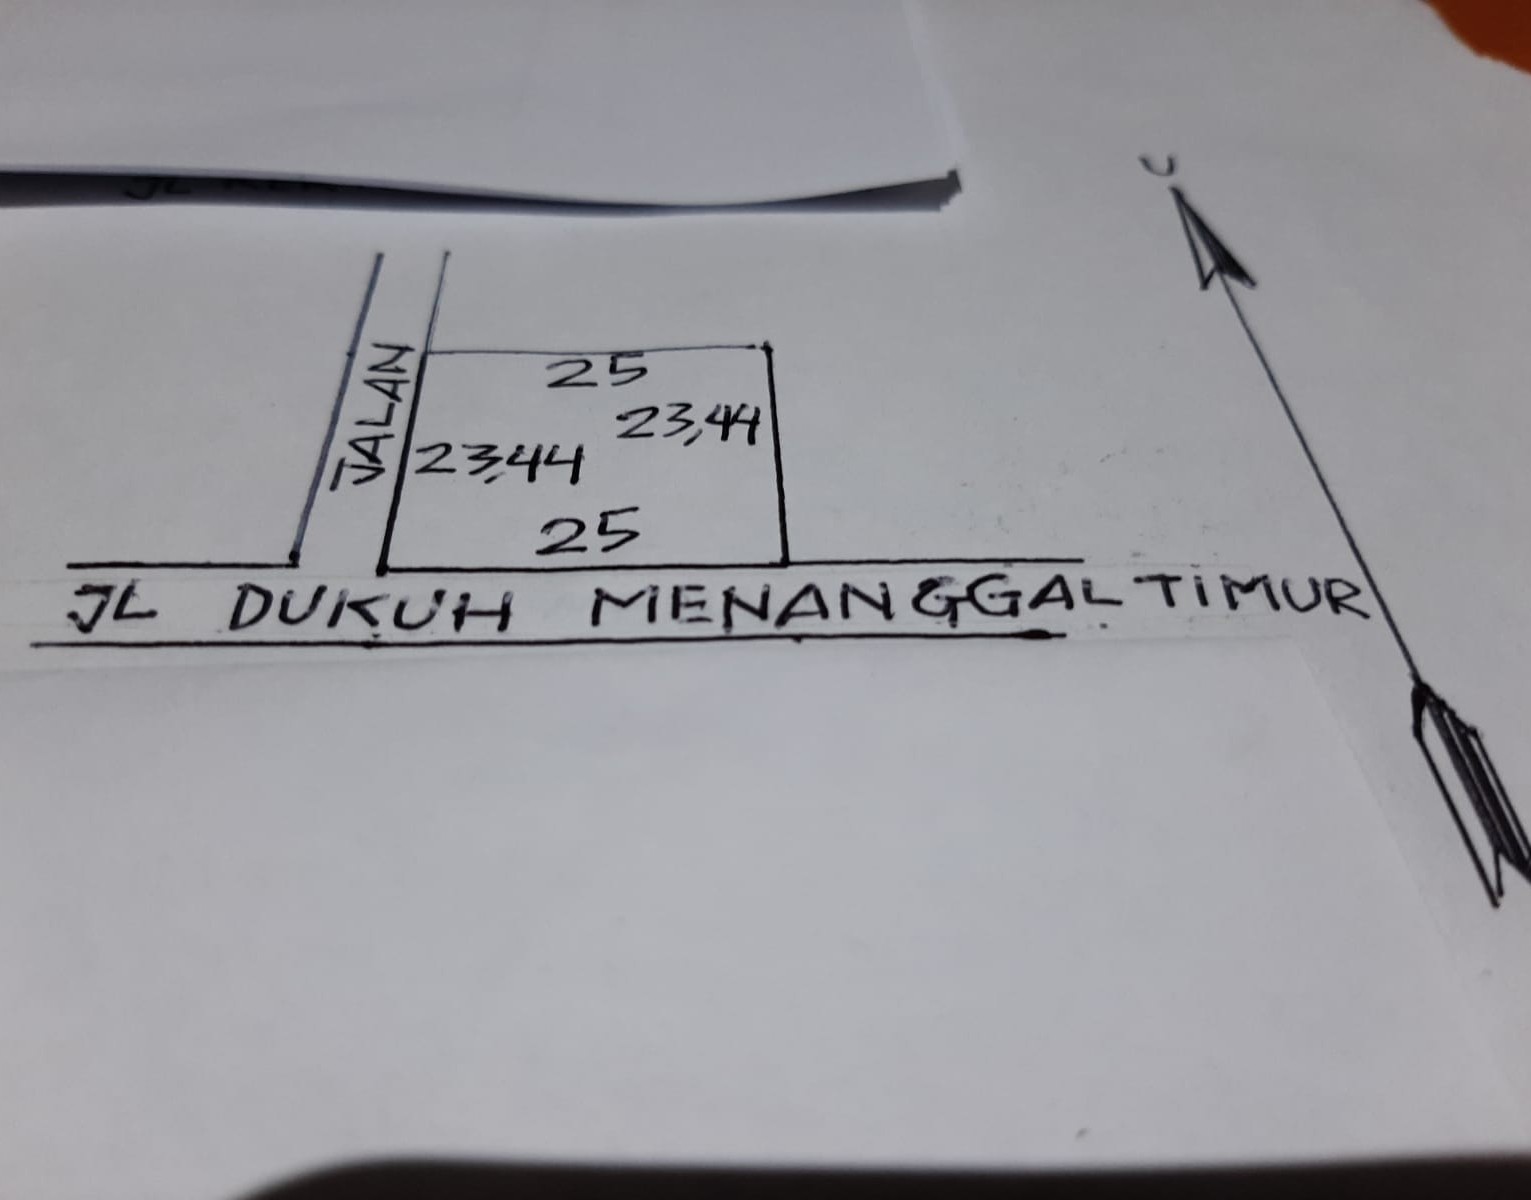 U
JALAN
25
23,44
23,44
25
JL DUKUH MENANGGAL TIMUR